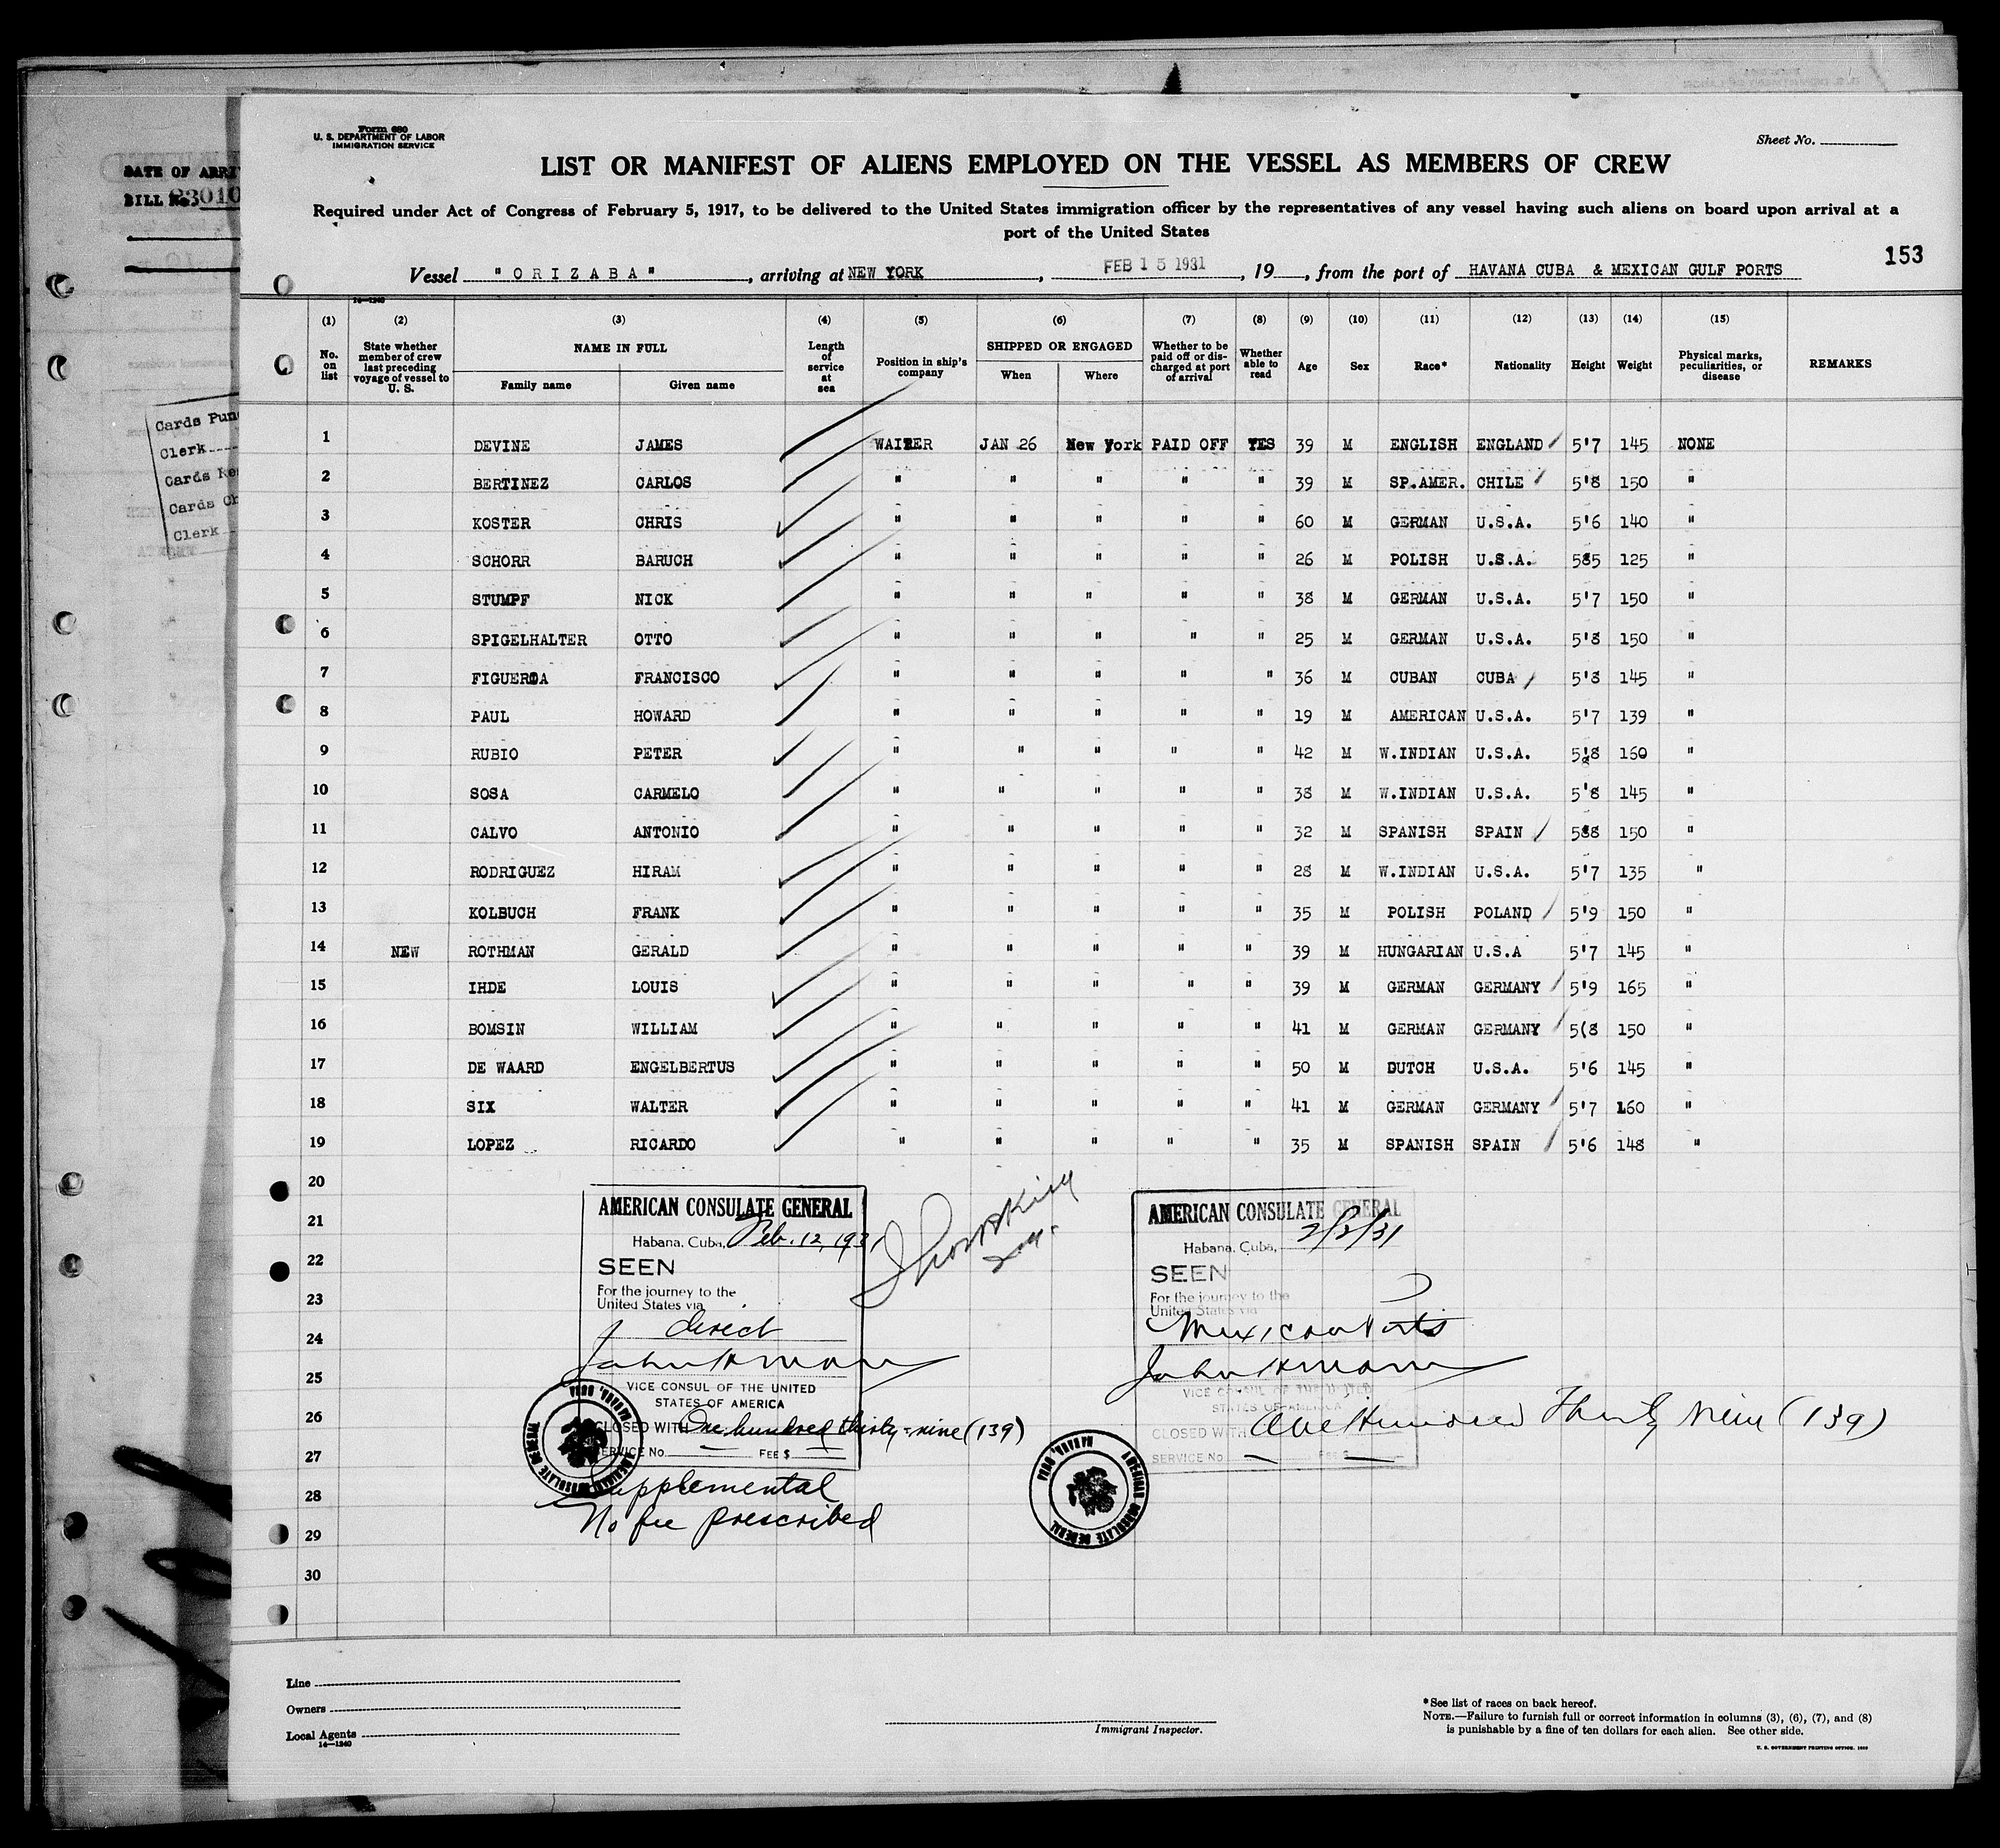 Form 680
U. S. DEPARTMENT OF LABOR
IMMIGRATION SERVICE
Sheet No.
LIST OR MANIFEST OF ALIENS EMPLOYED ON THE VESSEL AS MEMBERS OF CREW
Required under Act of Congress of February 5, 1917, to be delivered to the United States immigration officer by the representatives of any vessel having such aliens on board upon arrival at a
port of the United States
153
Vessel "ORIZABA", arriving at NEW YORK, FEB 15 1931, 19, from the port of HAVANA CUBA & MEXICAN GULF PORTS
14—1240
(1) (2) (3) (4) (5) (6) (7) (8) (9) (10) (11) (12) (13) (14) (15)
No. on list
State whether member of crew last preceding voyage of vessel to U. S.
NAME IN FULL
Family name Given name
Length of service at sea
Position in ship's company
SHIPPED OR ENGAGED
When Where
Whether to be paid off or discharged at port of arrival
Whether able to read
Age Sex Race* Nationality Height Weight
Physical marks, peculiarities, or disease
REMARKS
1 DEVINE JAMES WAITER JAN 26 New York PAID OFF YES 39 M ENGLISH ENGLAND 5'7 145 NONE
2 BERTINEZ CARLOS " " " " " 39 M SP.AMER. CHILE 5'8 150 "
3 KOSTER CHRIS " " " " " 60 M GERMAN U.S.A. 5'6 140 "
4 SCHORR BARUCH " " " " " 26 M POLISH U.S.A. 585 125 "
5 STUMPF NICK " " " " " 38 M GERMAN U.S.A. 5'7 150 "
6 SPIGELHALTER OTTO " " " " " 25 M GERMAN U.S.A. 5'8 150 "
7 FIGUEROA FRANCISCO " " " " " 36 M CUBAN CUBA 5'8 145 "
8 PAUL HOWARD " " " " " 19 M AMERICAN U.S.A. 5'7 139 "
9 RUBIO PETER " " " " " 42 M W.INDIAN U.S.A. 5'8 160 "
10 SOSA CARMELO " " " " " 38 M W.INDIAN U.S.A. 5'8 145 "
11 CALVO ANTONIO " " " " " 32 M SPANISH SPAIN 588 150 "
12 RODRIGUEZ HIRAM " " " " " 28 M W.INDIAN U.S.A. 5'7 135 "
13 KOLBUCH FRANK " " " " " 35 M POLISH POLAND 5'9 150 "
14 NEW ROTHMAN GERALD " " " " " 39 M HUNGARIAN U.S.A 5'7 145 "
15 IHDE LOUIS " " " " " 39 M GERMAN GERMANY 5'9 165 "
16 BOMSIN WILLIAM " " " " " 41 M GERMAN GERMANY 5(8 150 "
17 DE WAARD ENGELBERTUS " " " " " 50 M DUTCH U.S.A. 5'6 145 "
18 SIX WALTER " " " " " 41 M GERMAN GERMANY 5'7 160 "
19 LOPEZ RICARDO " " " " " 35 M SPANISH SPAIN 5'6 148 "
20
21
22
23
24
25
26
27
28
29
30
AMERICAN CONSULATE GENERAL
Habana, Cuba, Feb. 12, 1931
SEEN
For the journey to the
United States via
direct
VICE CONSUL OF THE UNITED
STATES OF AMERICA
CLOSED WITH One hundred thirty-nine (139)
SERVICE No. FEE $
Supplemental
No fee prescribed
AMERICAN CONSULATE GENERAL HABANA, CUBA
AMERICAN CONSULATE GENERAL
Habana, Cuba, 2/2/31
SEEN
For the journey to the
United States via
Mexican Ports
VICE CONSUL OF THE UNITED
STATES OF AMERICA
CLOSED WITH One Hundred Thirty nine (139)
SERVICE No FEE $
AMERICAN CONSULATE GENERAL HABANA, CUBA
Line
Owners
Local Agents
14—1240
Immigrant Inspector.
*See list of races on back hereof.
NOTE.—Failure to furnish full or correct information in columns (3), (6), (7), and (8)
is punishable by a fine of ten dollars for each alien. See other side.
DATE OF ARRI
BILL No.
Cards Pun
Clerk
Cards Ke
Cards Ch
Clerk